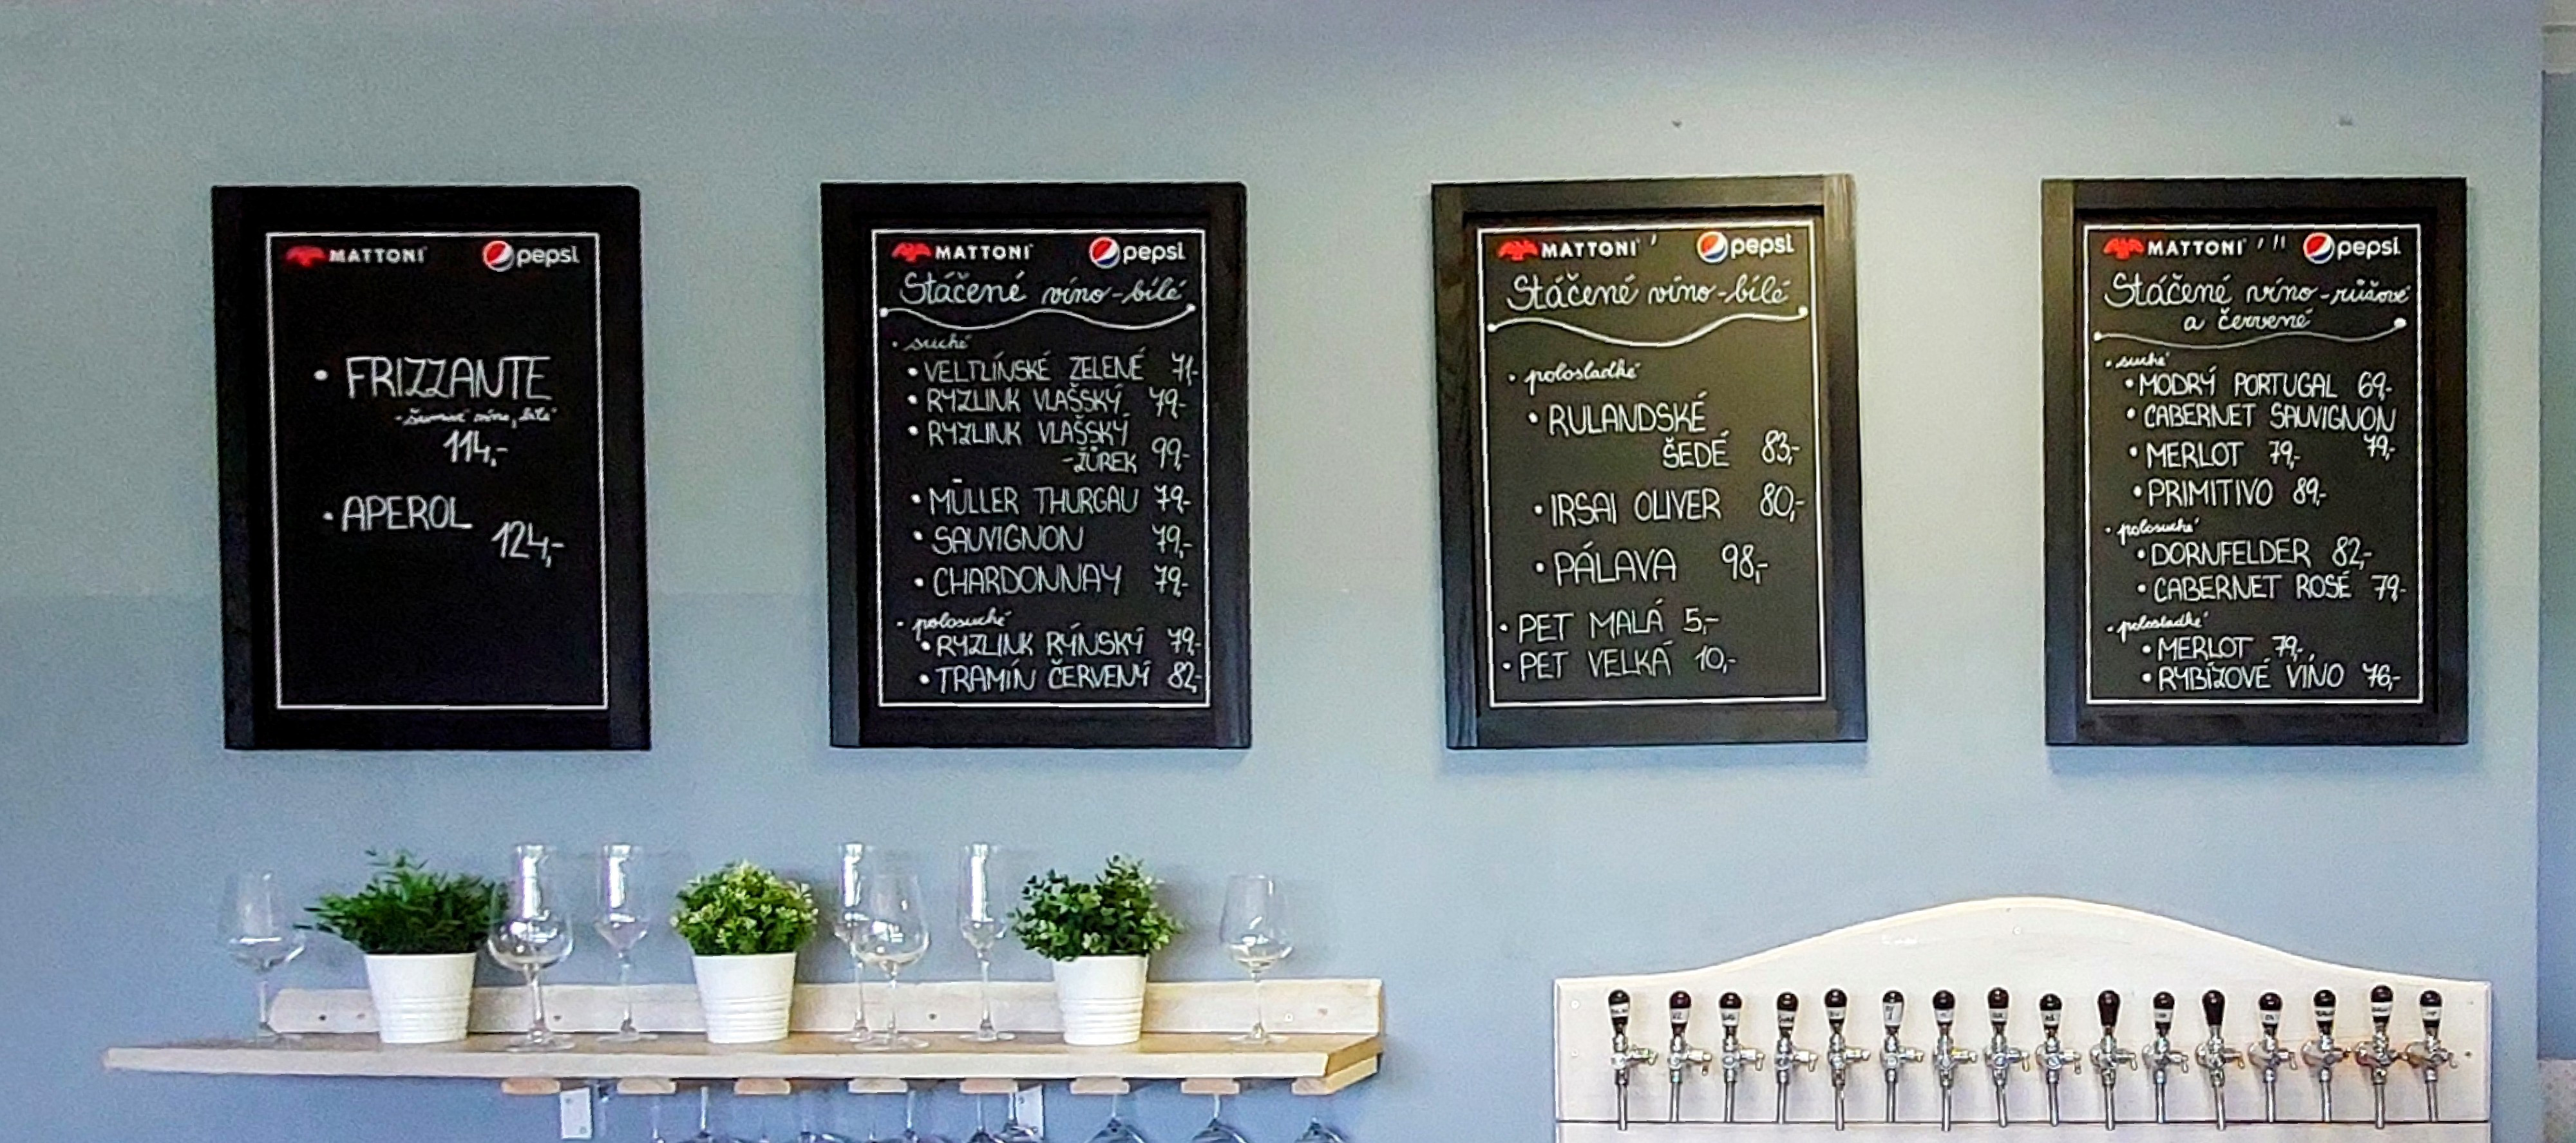 MATTONI pepsi
• FRIZZANTE
- šumivé víno, bílé
114,-
• APEROL
124,-
MATTONI pepsi
Stáčené víno - bílé
• suché
• VELTLÍNSKÉ ZELENÉ 71,-
• RYZLINK VLAŠSKÝ 79,-
• RYZLINK VLAŠSKÝ
- ŽŮREK 99,-
• MÜLLER THURGAU 79,-
• SAUVIGNON 79,-
• CHARDONNAY 79,-
- polosuché
• RYZLINK RÝNSKÝ 79,-
• TRAMÍN ČERVENÝ 82,-
MATTONI pepsi
Stáčené víno - bílé
• polosladké
• RULANDSKÉ
ŠEDÉ 83,-
• IRSAI OLIVER 80,-
• PÁLAVA 98,-
• PET MALÁ 5,-
• PET VELKÁ 10,-
MATTONI pepsi
Stáčené víno - růžové
a červené
• suché
• MODRÝ PORTUGAL 69,-
• CABERNET SAUVIGNON
79,-
• MERLOT 79,-
• PRIMITIVO 89,-
• polosuché
• DORNFELDER 82,-
• CABERNET ROSÉ 79,-
• polosladké
• MERLOT 79,-
• RYBÍZOVÉ VÍNO 76,-